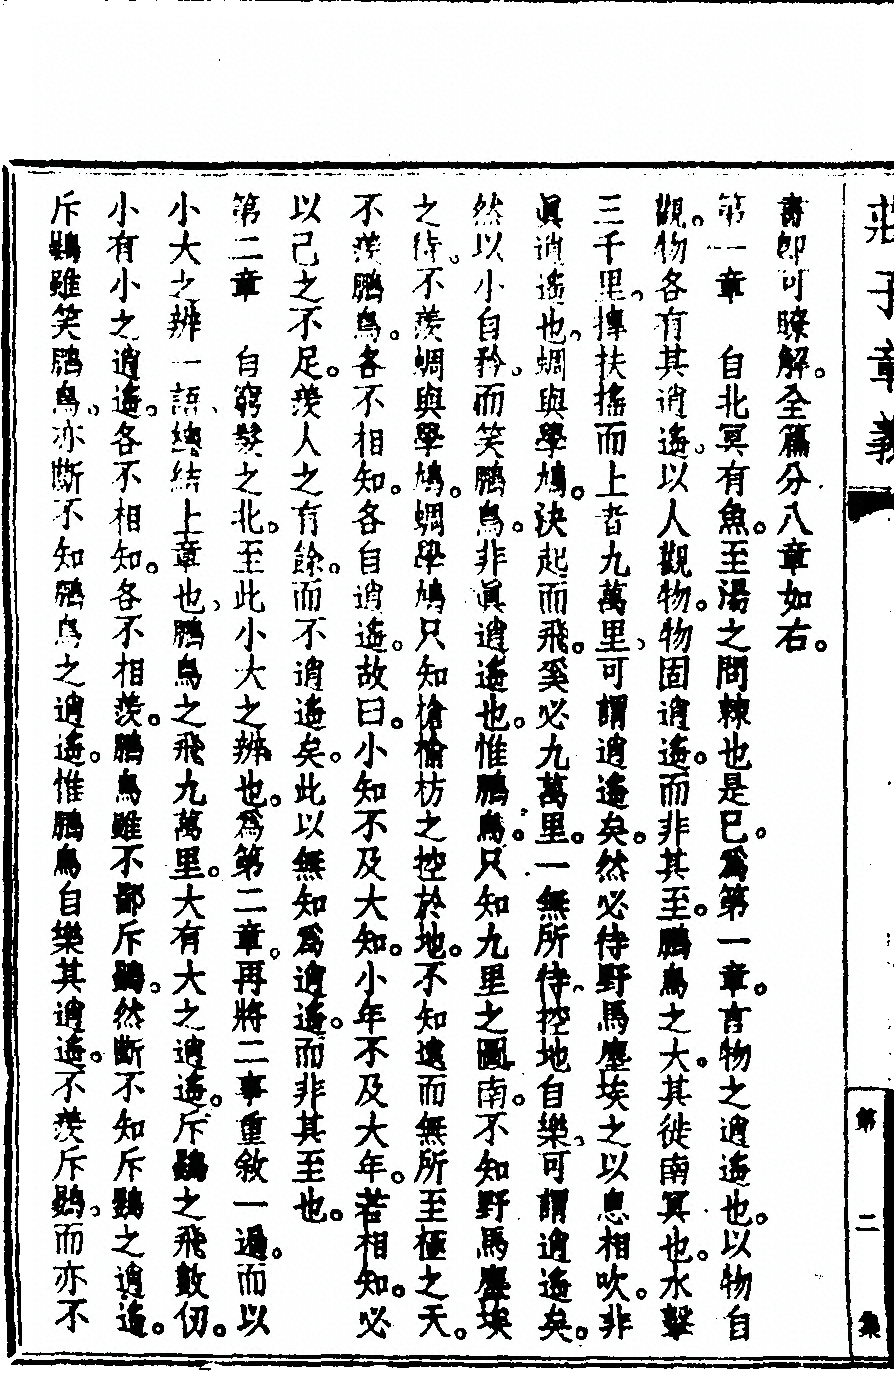 莊子章義
第二集
書卽可瞭解。全篇分八章如右。
第一章　自北冥有魚。至湯之問棘也是已。爲第一章。言物之逍遙也。以物自
觀。物各有其逍遙。以人觀物。物固逍遙。而非其至。鵬鳥之大。其徙南冥也。水擊
三千里。摶扶搖而上者九萬里、可謂逍遙矣。然必待野馬塵埃之以息相吹。非
眞逍遙也。蜩與學鳩。決起而飛。奚必九萬里。一無所待、控地自樂、可謂逍遙矣。
然以小自矜、而笑鵬鳥。非眞逍遙也。惟鵬鳥。只知九里之圖南。不知野馬塵埃
之待。不羨蜩與學鳩。蜩學鳩只知槍楡枋之控於地。不知遠而無所至極之天。
不羨鵬鳥。各不相知。各自逍遙。故曰。小知不及大知。小年不及大年。若相知。必
以己之不足。羨人之有餘。而不逍遙矣。此以無知爲逍遙。而非其至也。
第二章　自窮髮之北。至此小大之辨也。爲第二章。再將二事重敘一過。而以
小大之辨一語、總結上章也、鵬鳥之飛九萬里。大有大之逍遙。斥鷃之飛數仞。
小有小之逍遙。各不相知。各不相羨。鵬鳥雖不鄙斥鷃。然斷不知斥鷃之逍遙。
斥鷃雖笑鵬鳥、亦斷不知鵬鳥之逍遙。惟鵬鳥自樂其逍遙。不羨斥鷃、而亦不